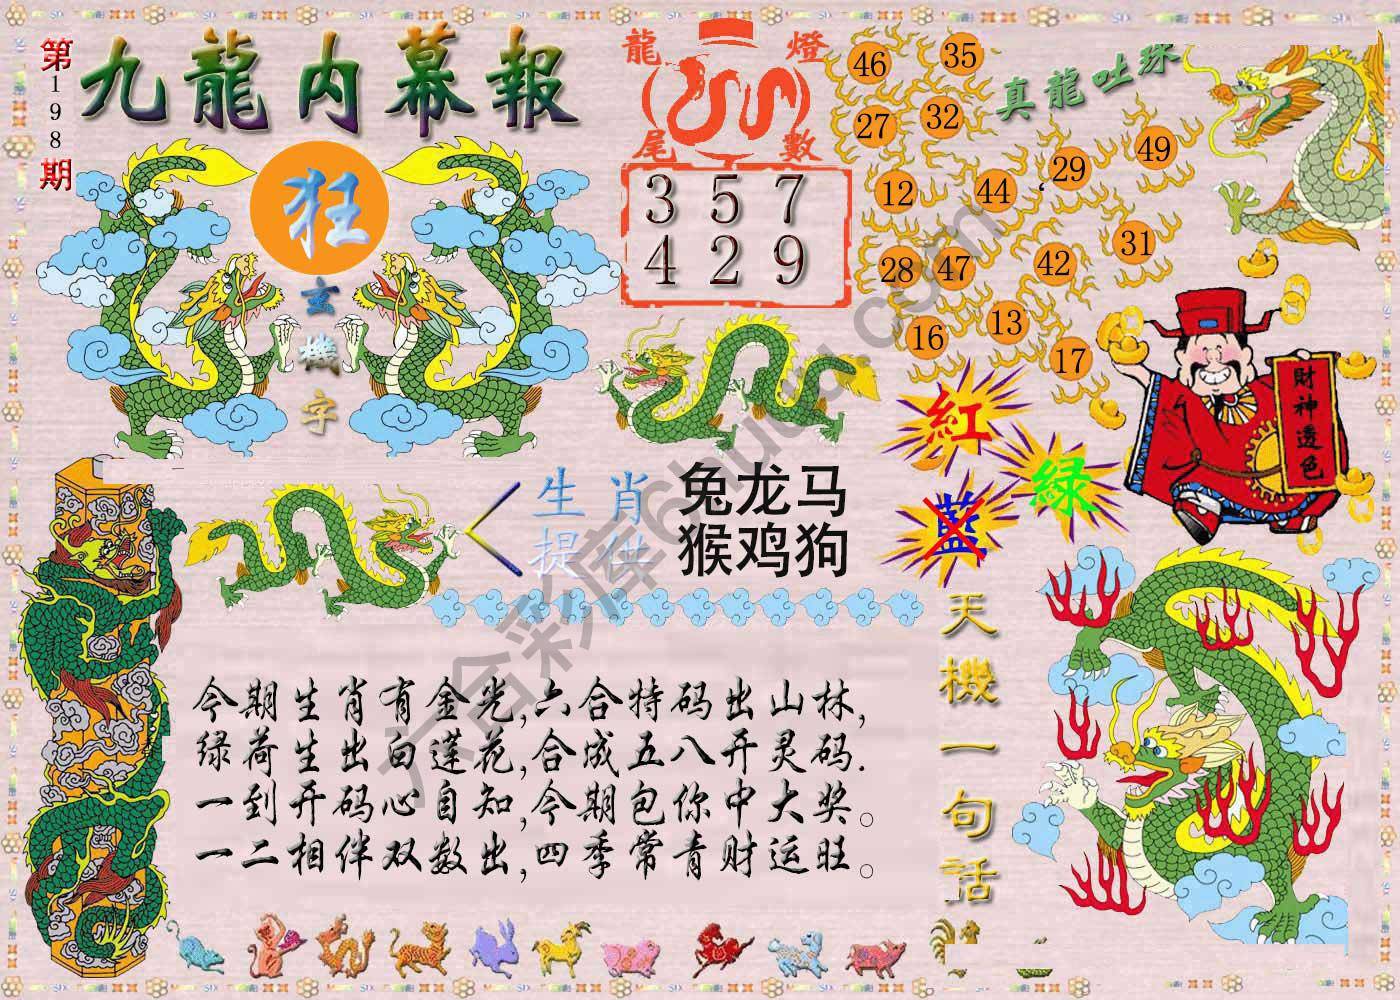 第198期
九龍内幕報
狂
玄機字
龍燈
尾數
3 5 7
4 2 9
真龍吐珠
46 35
27 32
12 44 29 49
28 47 42 31
16 13 17
財神透色
紅
绿
藍
生肖 兔龙马
提供 猴鸡狗
天機一句话
今期生肖有金光,六合特码出山林,
绿荷生出白莲花,合成五八开灵码.
一到开码心自知,今期包你中大奖。
一二相伴双数出,四季常青财运旺。
六合彩库6huuu.com